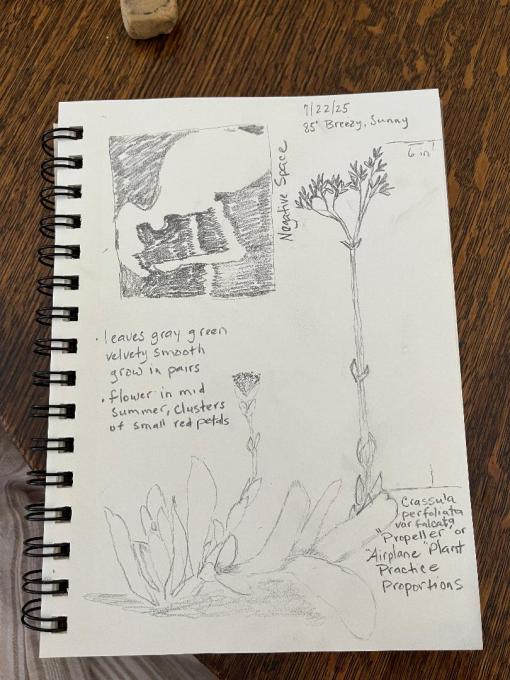 7/22/25
85° Breezy, Sunny
6 in
Negative Space
• leaves gray green
velvety smooth
grow in pairs
• flower in mid
summer, clusters
of small red petals
Crassula
perfoliata
var falcata
"Propeller" or
"Airplane" Plant
Practice
Proportions